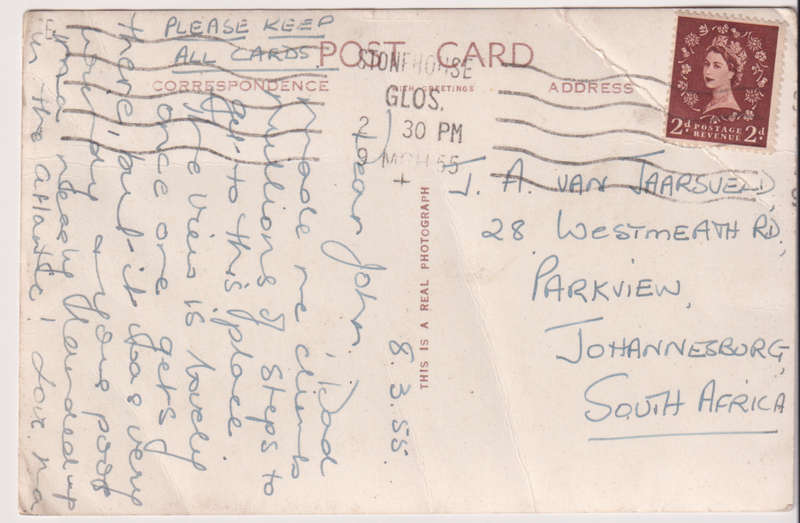 PLEASE KEEP
ALL CARDS
POST CARD
CORRESPONDENCE
WITH GREETINGS
ADDRESS
STONEHOUSE
GLOS.
2 30 PM
9 MCH 55
2D POSTAGE 2D
REVENUE
THIS IS A REAL PHOTOGRAPH
8.3.55.
Dear John, Dad
made me climb
millions of steps to
get to this place.
The view is lovely
once one gets
there, but it was very
windy & your poor
Ma nearly landed up
in the Atlantic! Love Ma
J. A. VAN JAARSVELD,
28 WESTMEATH RD,
PARKVIEW,
JOHANNESBURG,
SOUTH AFRICA